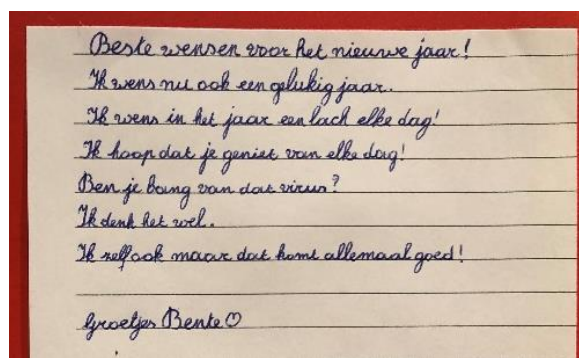 Beste wensen voor het nieuwe jaar!
Ik wens nu ook een gelukig jaar.
Ik wens in het jaar een lach elke dag!
Ik hoop dat je geniet van elke dag!
Ben je bang van dat virus?
Ik denk het wel.
Ik zelf ook maar dat komt allemaal goed!
Groetjes Bente♡